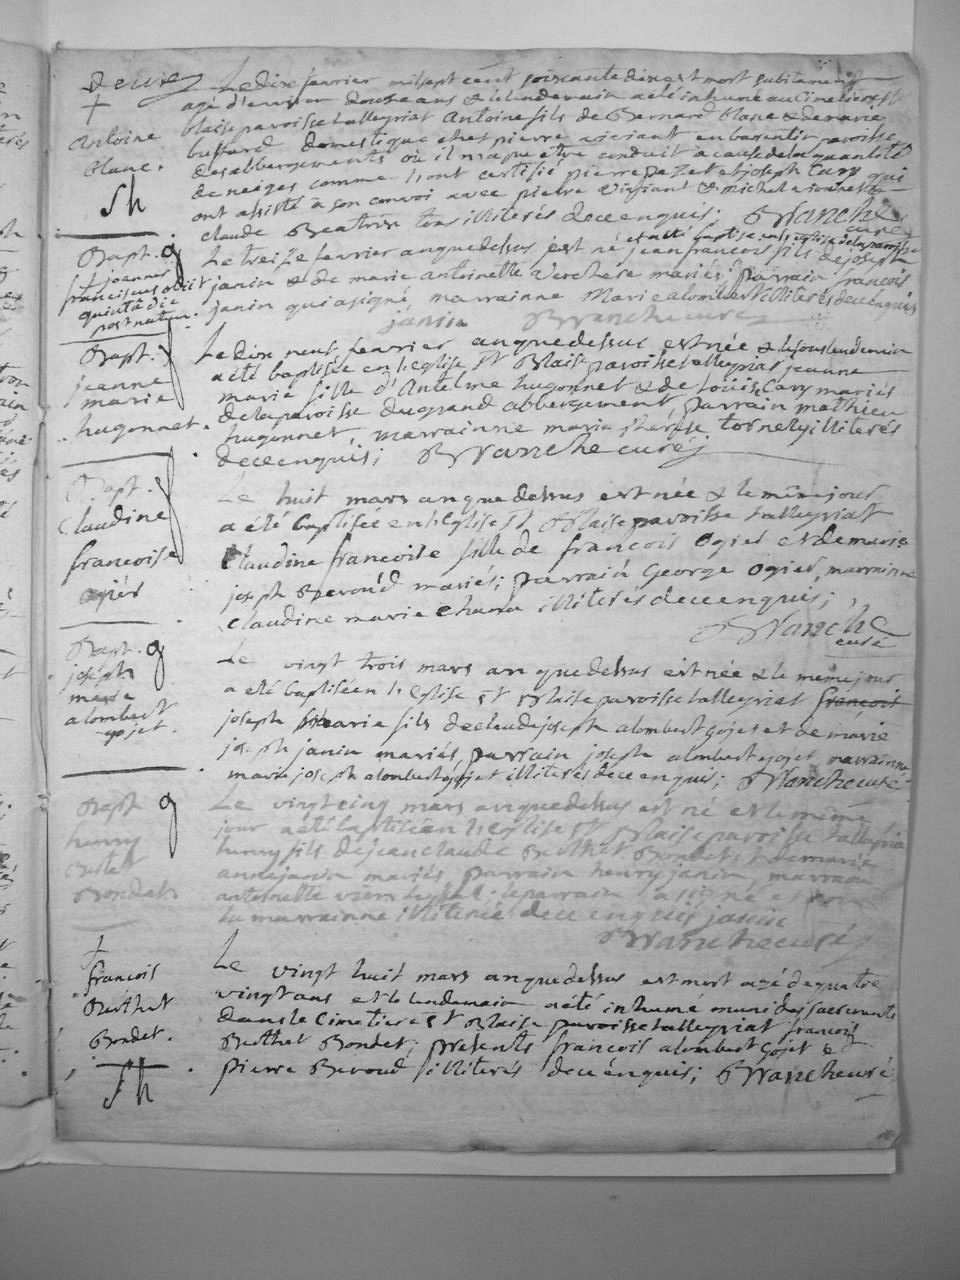 Le dix fevrier mil sept cent soixante dix est mort subitement
agé d'environ douze ans & le lendemain a eté inhumé au cimetiere St
blaise paroisse talleyriat Antoine fils de Bernard blanc & de marie
buffard domestique chez pierre viviant en barentin paroisse
des abbergements où il n'a pu etre conduit a cause de la quantité
de neiges comme l'ont certifié pierre pazet et joseph Cary qui
ont assisté à son convoi avec pierre vivjiant & michel
claude Beatrix tous illiterés de ce enquis; BWanche
curé
+
Antoine
blanc.
Sh
Le treize fevrier an que dessus est né et a eté baptisé en l'eglise de la paroisse jean francois fils de joseph
janin & de marie antoinette verchere mariés, parrain francois
janin qui a signé, marrainne Marie alombert illiterés de ce enquis
janin BWanche curé
Bapt. g
+ joannes
franciscus obiit
quinta die
post natum.
Le dix neuf fevrier an que dessus est née & le jour lendemain
a eté baptisée en l'eglise St Blaise paroisse talleyriat jeanne
marie fille d'Antelme hugonnet & de Louise Cary mariés
de la paroisse du grand abbergement, parrain mathieu
hugonnet, marrainne marie therese tornety illiterés
de ce enquis; BWanche curé
Bapt.
jeanne
marie
hugonnet.
Le huit mars an que dessus est née & le même jour
a été baptisée en l'Eglise St Blaise paroisse talleyriat
Claudine francoise fille de francois ogier et de marie
joseph Beroud mariés; parrain George ogier, marrainne
Claudine marie illiterés de ce enquis;
BWanche
curé
Bapt.
Claudine
francoise
ogier
Le vingt trois mars an que dessus est née & le même jour
a eté baptisé en l'Eglise St Blaise paroisse talleyriat francois
joseph marie fils de claude joseph alombert gojet et de marie
joseph janin mariés, parrain joseph alombert gojet marrainne
marie joseph alombert gojet illiterés de ce enquis; BWanche curé
Bapt. g
joseph
marie
alombert
gojet.
Le vingt cinq mars an que dessus est né et le même
jour a eté baptisé en l'Eglise St Blaise paroisse talleyriat
henry fils de jean claude Berthet Bondet et de marie
anne janin mariés, parrain henry janin, marraine
antoinette le parrain a signé et non
la marrainne illiterée de ce enquis janin
BWanche curé
Bapt g
henry
Bertet
Bondet
Le vingt huit mars an que dessus est mort agé de quatre
vingt ans et le lendemain a eté inhumé muni des sacrements
dans le Cimetiere St Blaise paroisse talleyriat francois
Berthet Bondet; presents francois alombert gojet &
pierre Beroud illiterés de ce enquis; BWanche curé
+
francois
Berthet
Bondet.
Sh